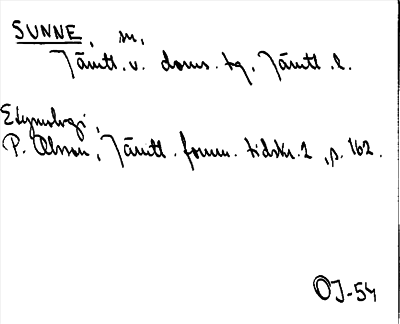 SUNNE, sn,
Jämtl. v. doms. tg, Jämtl. l.
Etymologi,
P. Olsson, Jämtl. fornm. tidskr. 2, s. 162.
OJ-54